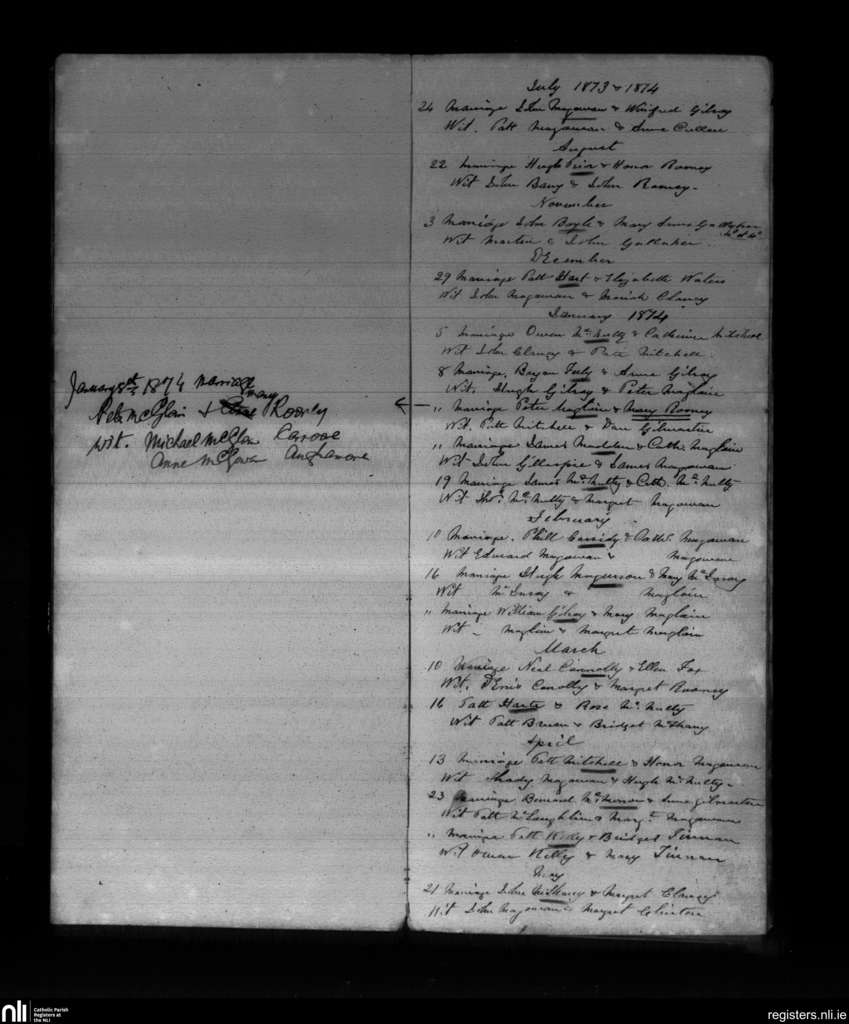 January 8th 1874 Marriage
Mary
McGloin + Roonly
Wit. Michael McGlou
Anne McGowan
July 1873 & 1874
24 Marriage John Magowan & Winifred Gilroy
Wit. Patt Magowan & Anne Cullen
August
22 Marriage Hugh & Honor Rooney
Wit John Barry & John Rooney
November
3 Marriage John Boyle & Mary Anne
Wit Martin & John Gallaher
December
29 Marriage Patt Hart & Elizabeth Waters
Wit John Magowan & Mariah Clancy
January 1874
5 Marriage Owen Mc Nulty & Catherine Mitchell
Wit John Clancy & Pat Mitchell
8 Marriage, Bryan Feely & Anne Gilroy
Wit. Hugh Gilroy & Peter Maglain
" Marriage Peter Maglain & Mary Rooney
Wit. Patt Mitchell & Dan Gilmartin
" Marriage James Madden & Cath. Maglain
Wit John Gillespie & James Magowan
19 Marriage James Mc Nulty & Cath. Mc Nulty
Wit Thos. Mc Nulty & Margret Magowan
February
10 Marriage. Phill Cassidy & Magowan
Wit Edward Magowan & Magowan
16 Marriage Hugh & Mary
Wit & Maglain
" Marriage William Gilroy & Mary Maglain
Wit - Maglain & Margret Maglain
March
10 Marriage Neal Connolly & Ellen Fox
Wit. Denis Conolly & Margret Rooney
16 Patt Harte & Rose Mc Nulty
Wit Patt & Bridget
April
13 Marriage Patt Mitchell & Honor Magowan
Wit Thady Magowan & Hugh Mc Nulty
23 Marriage Bernard & Anne Gilmartin
Wit Patt McLaughlin & Margt. Magowan
" Marriage Patt Kelly & Bridget Tinnan
Wit Owen Kelly & Mary Tinnan
May
21 Marriage John & Margret Clancy
Wit John Magowan & Margret
nli
Catholic Parish
Registers at
the NLI
registers.nli.ie